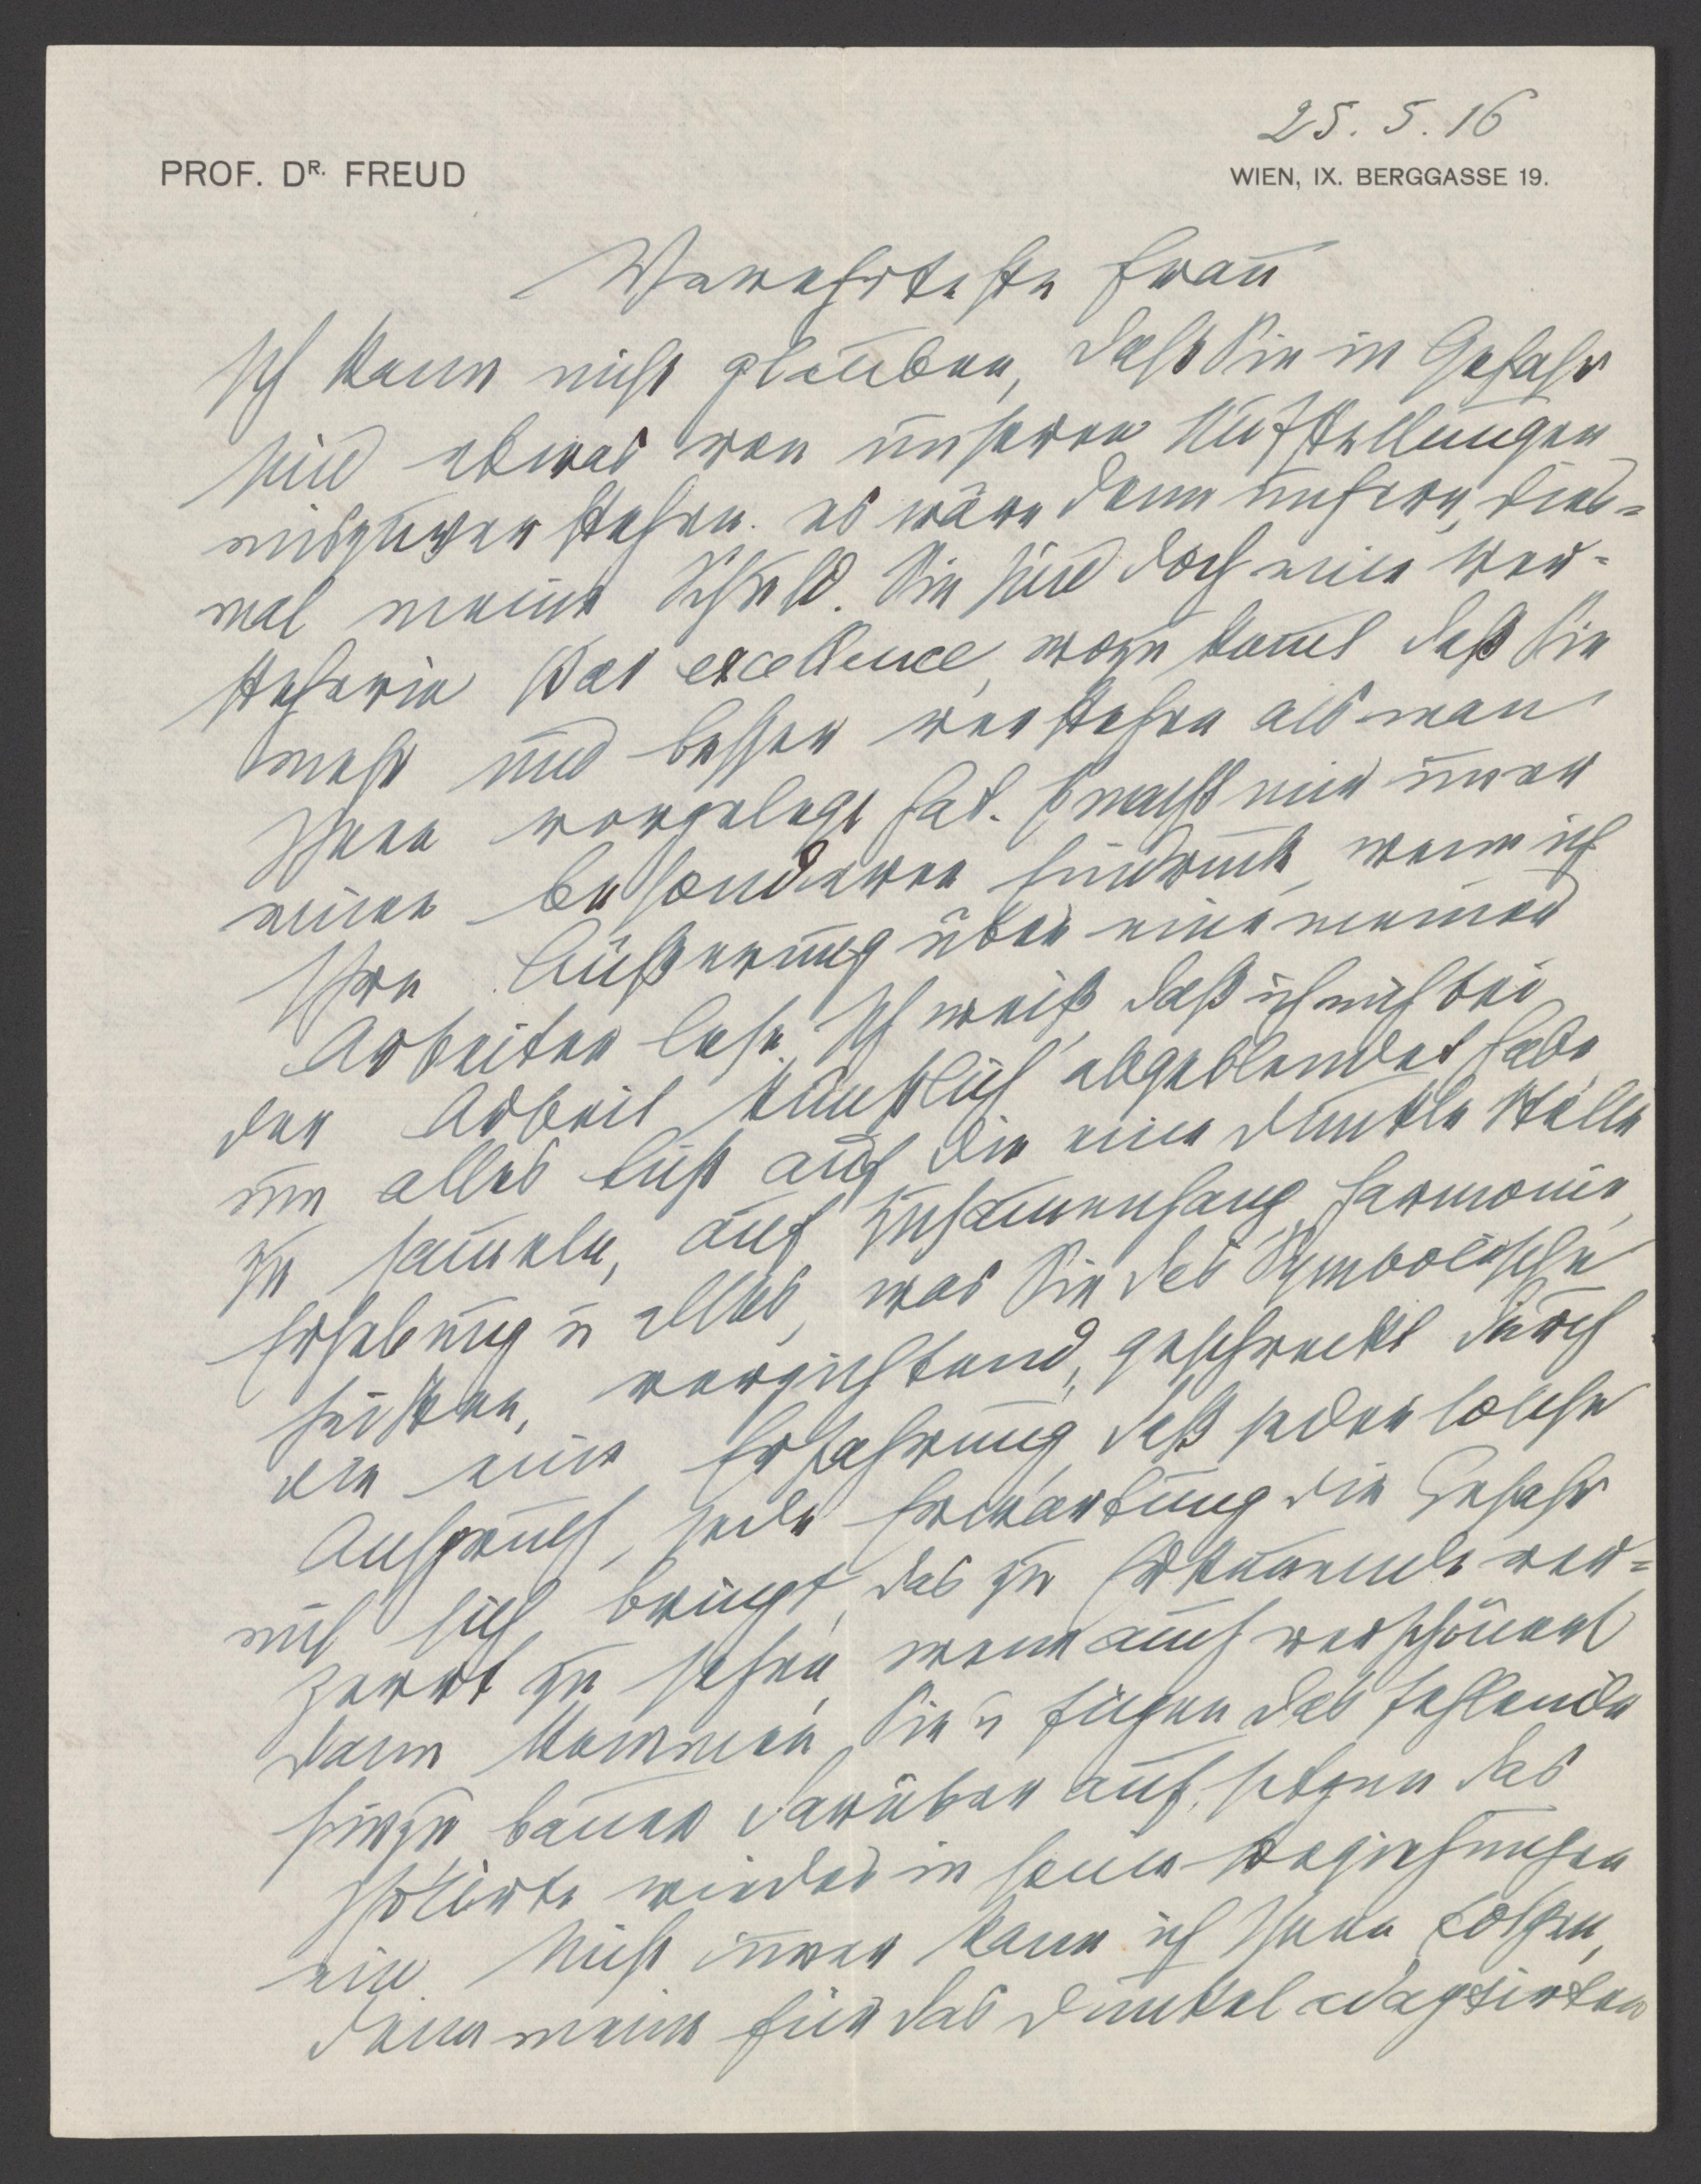 25. 5. 16
PROF. DR. FREUD
WIEN, IX. BERGGASSE 19.
Verehrteste Frau
Ich kann nicht glauben, daß Sie in Gefahr
sind etwas von unseren Aufstellungen
mißzuverstehen. es wäre denn unsere, dies-
mal meine Schuld. Sie sind doch eine Ver-
steherin par excellence, wozu komt daß Sie
mehr und besser verstehen als man
Ihnen vorgelegt hat. Es macht mir im̅er
einen besonderen Eindruck, wenn ich
Ihre Äußerung über eine meiner
Arbeiten lese. Ich weiß, daß ich mich bei
der Arbeit künstlich abgeblendet habe
um alles Licht auf die eine dunkle Stelle
zu sam̅eln, auf Zusam̅enhang, Harmonie,
Erhebung u alles, was Sie das Symbolische
heißen, verzichtend, geschreckt durch
die eine Erfahrung, daß jeder solche
Anspruch, jede Erwartung die Gefahr
mit sich bringt, das zu Erken̅ende ver-
zerrt zu sehen, wenn auch verschönert
Dann kommen Sie u fügen das Fehlende
hinzu, bauen darüber auf, setzen das
Isolirte wieder in seine Beziehungen
ein. Nicht im̅er kann ich Ihnen folgen,
denn meine für das Dunkel adaptirten